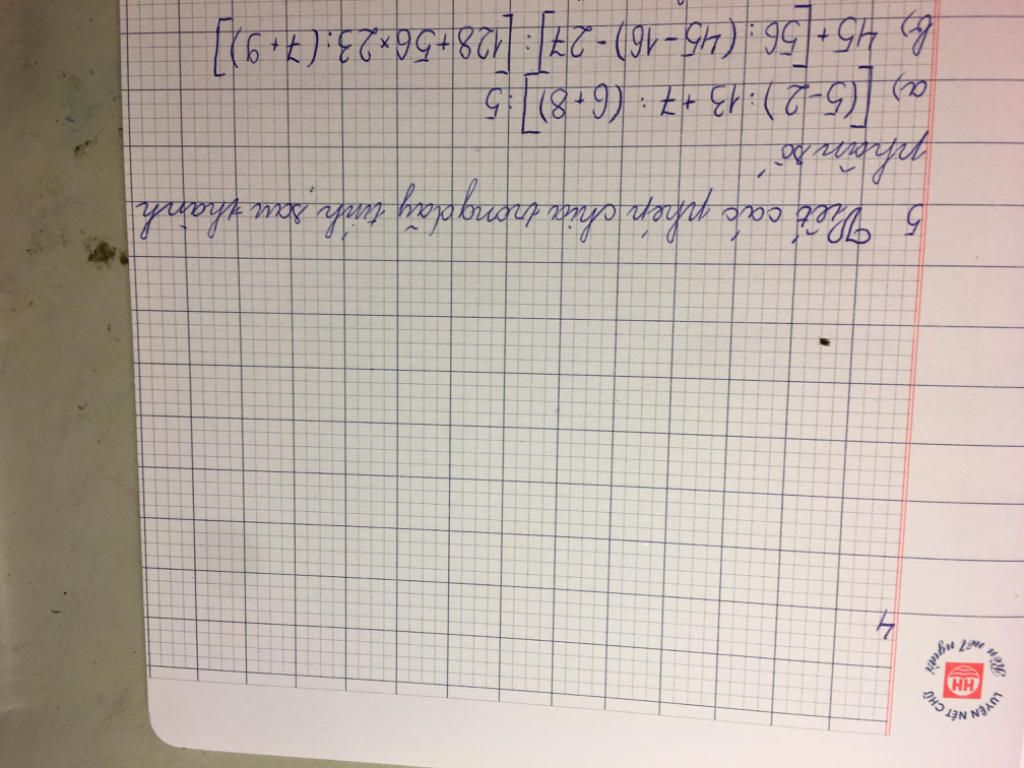 LUYỆN NÉT CHỮ
HH
Rèn nết người
4
5 Viết các phép chia trong dãy tính sau thành
phân số
a) [(5-2):13+7:(6+8)]:5
b) 45+[56:(45-16)-27]:[128+56×23:(7+9)]